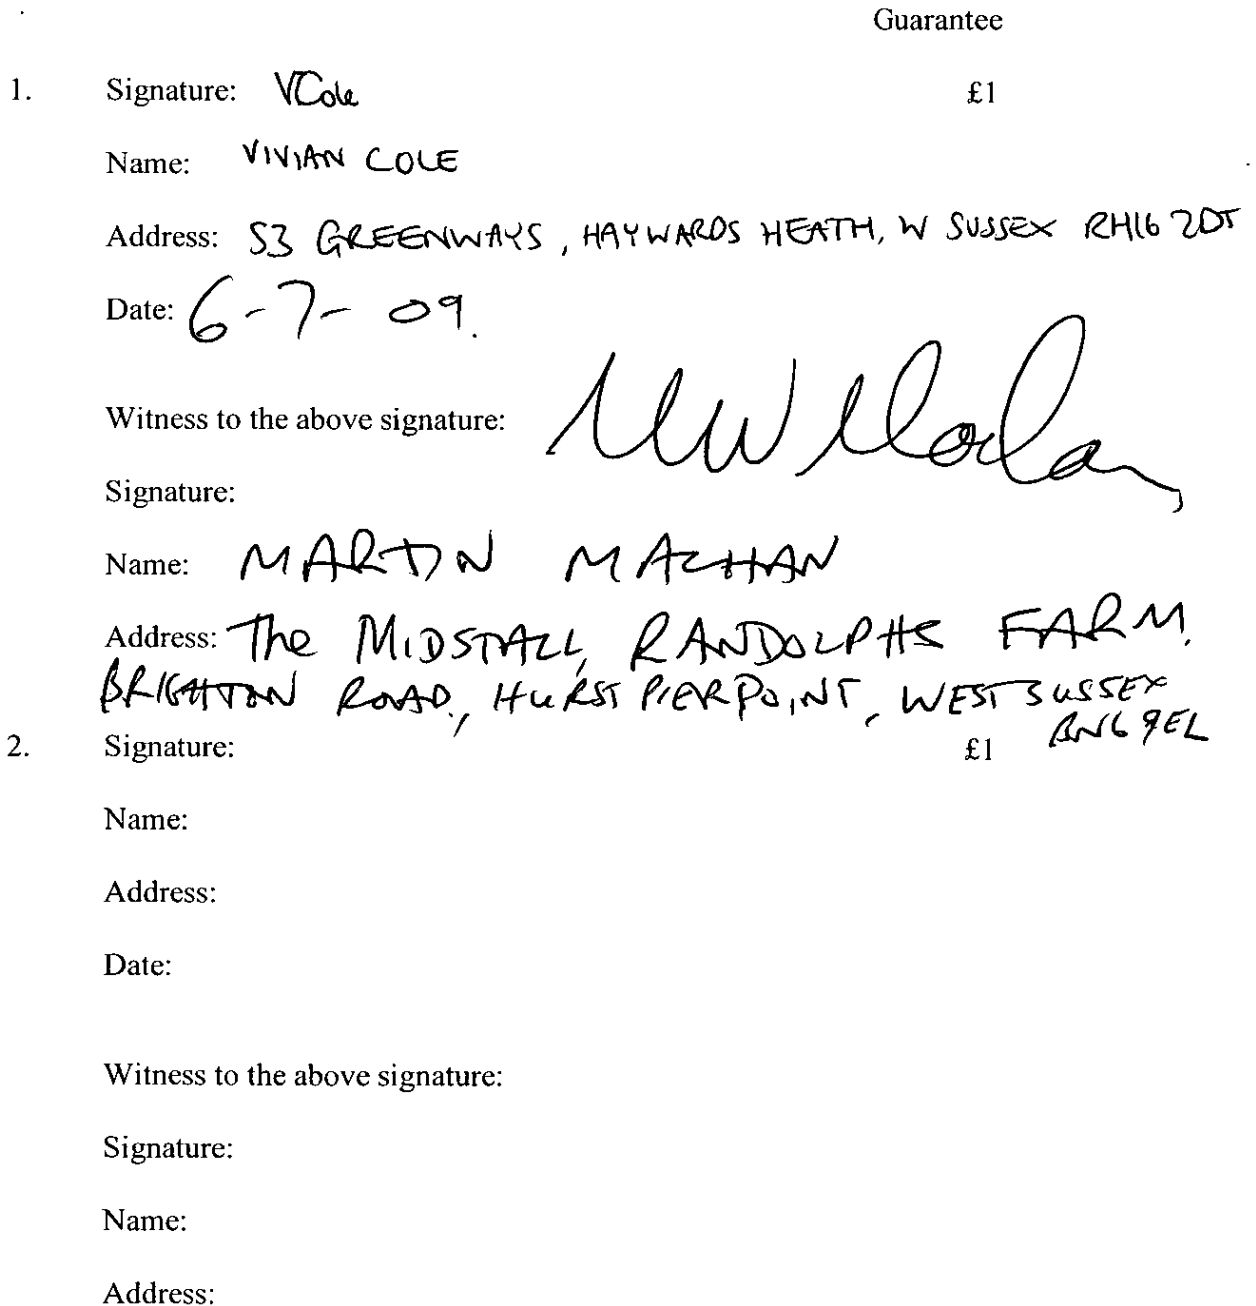 Guarantee
1. Signature: VCole £1
Name: VIVIAN COLE
Address: 53 GREENWAYS, HAYWARDS HEATH, W SUSSEX RH16 2DT
Date: 6-7-09.
Witness to the above signature:
Signature:
Name: MARTIN MACHAN
Address: The MIDSTALL, RANDOLPHS FARM,
BRIGHTON ROAD, HURSTPIERPOINT, WEST SUSSEX
BN6 9EL
2. Signature: £1
Name:
Address:
Date:
Witness to the above signature:
Signature:
Name:
Address: